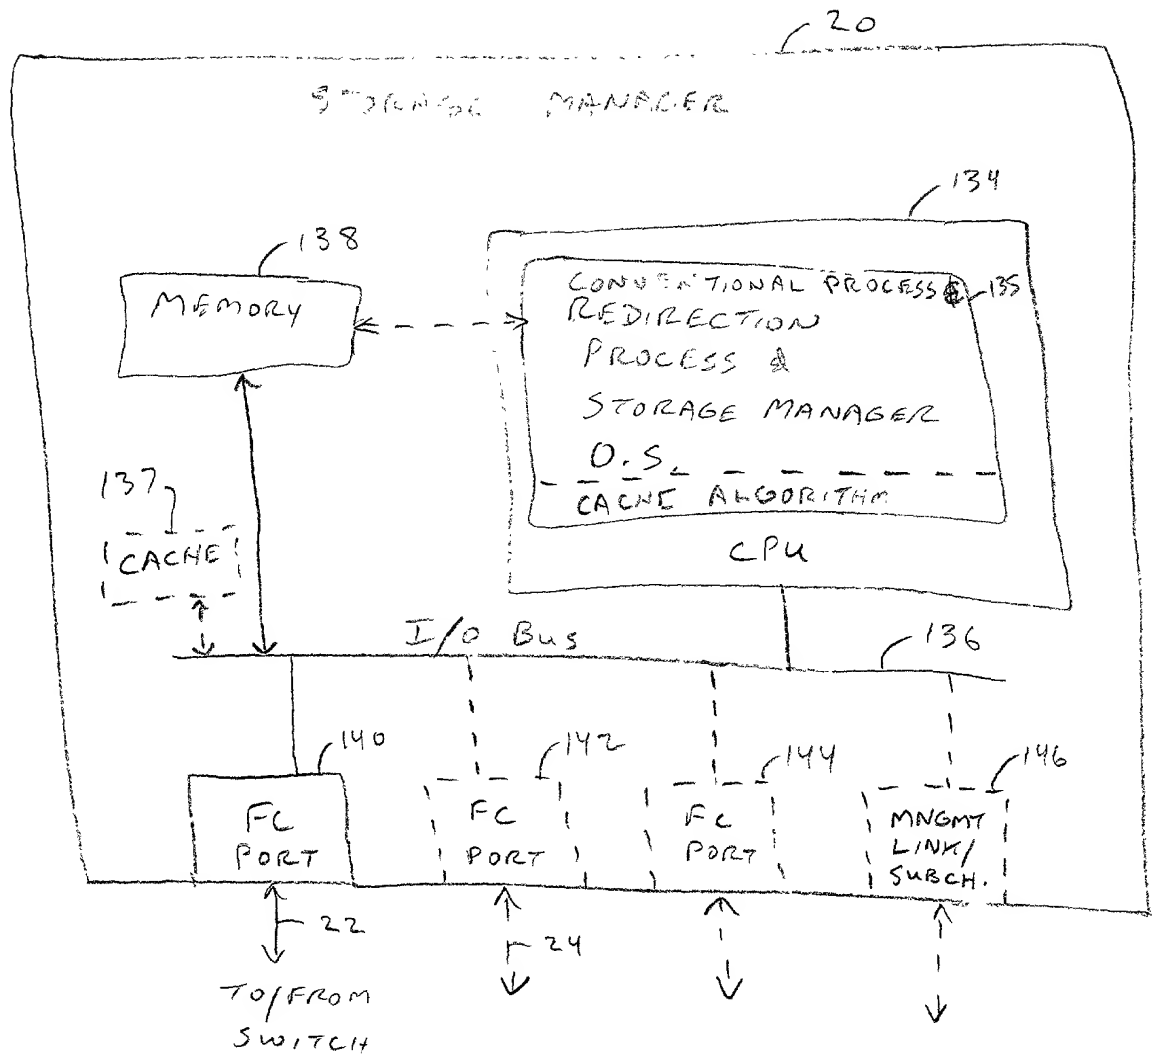 20
STORAGE MANAGER
134
138
MEMORY
CONVENTIONAL PROCESS &
135
REDIRECTION
PROCESS &
STORAGE MANAGER
O.S.
CACHE ALGORITHM
137
CACHE
CPU
I/O Bus
136
140
142
144
146
FC
PORT
FC
PORT
FC
PORT
MNGMT
LINK/
SUBCH.
22
24
TO/FROM
SWITCH